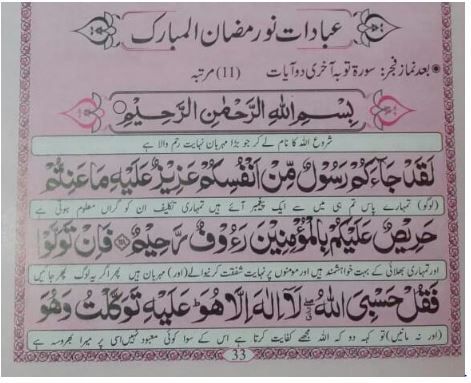 عبادات نور رمضان المبارک
بعد نماز فجر: سورۃ توبہ آخری دو آیات (11) مرتبہ
بِسْمِ اللهِ الرَّحْمٰنِ الرَّحِيْمِ
شروع اللہ کا نام لے کر جو بڑا مہربان نہایت رحم والا ہے
لَقَدْ جَآءَكُمْ رَسُوْلٌ مِّنْ اَنْفُسِكُمْ عَزِيْزٌ عَلَيْهِ مَا عَنِتُّمْ
(لوگو) تمہارے پاس تم ہی میں سے ایک پیغمبر آئے ہیں تمہاری تکلیف ان کو گراں معلوم ہوتی ہے
حَرِيْصٌ عَلَيْكُمْ بِالْمُؤْمِنِيْنَ رَءُوْفٌ رَّحِيْمٌ فَاِنْ تَوَلَّوْا
اور تمہاری بھلائی کے بہت خواہشمند ہیں اور مومنوں پر نہایت شفقت کرنیوالے (اور) مہربان ہیں پھر اگر یہ لوگ پھر جائیں
فَقُلْ حَسْبِيَ اللهُ لَآ اِلٰهَ اِلَّا هُوَ عَلَيْهِ تَوَكَّلْتُ وَهُوَ
(اور نہ مانیں) تو کہہ دو کہ اللہ مجھے کفایت کرتا ہے اس کے سوا کوئی معبود نہیں اسی پر میرا بھروسہ ہے
33